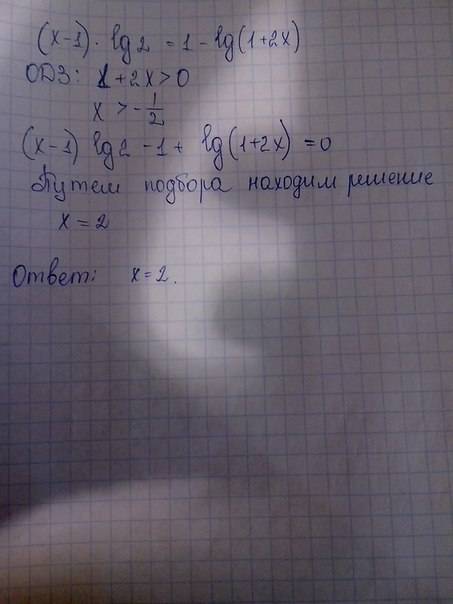 (x-1) · lg 2 = 1 - lg(1+2x)
ОДЗ: 1+2x>0
x > -1/2
(x-1) lg 2 - 1 + lg(1+2x) = 0
Путем подбора находим решение
x = 2
Ответ: x = 2.